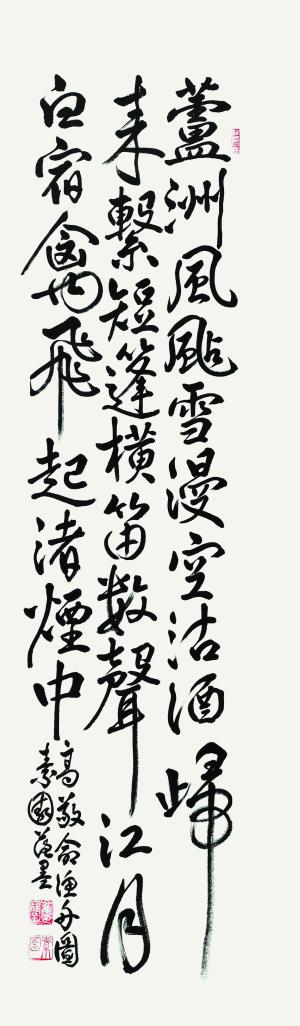 蘆洲風颭雪漫空沽酒歸
來繫短篷橫笛數聲江月
白宿禽飛起渚煙中
高敬命漁舟圖
素園墨